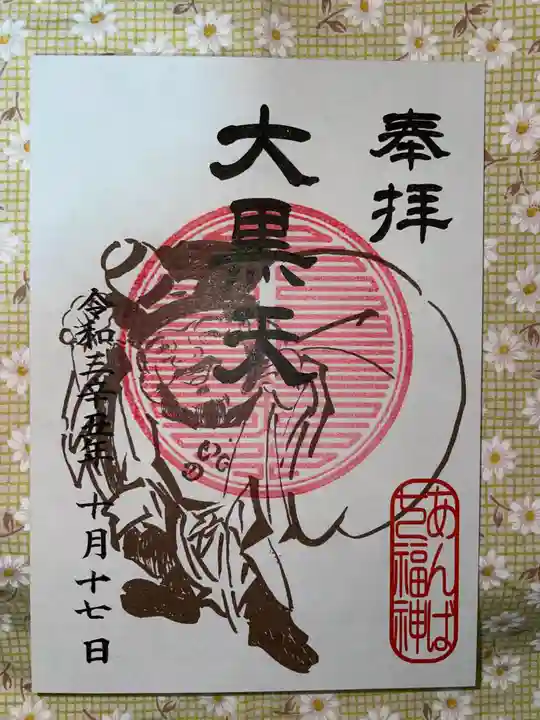 奉拝
大黒天
令和三年辛丑年 十月十七日
あんば
七福神